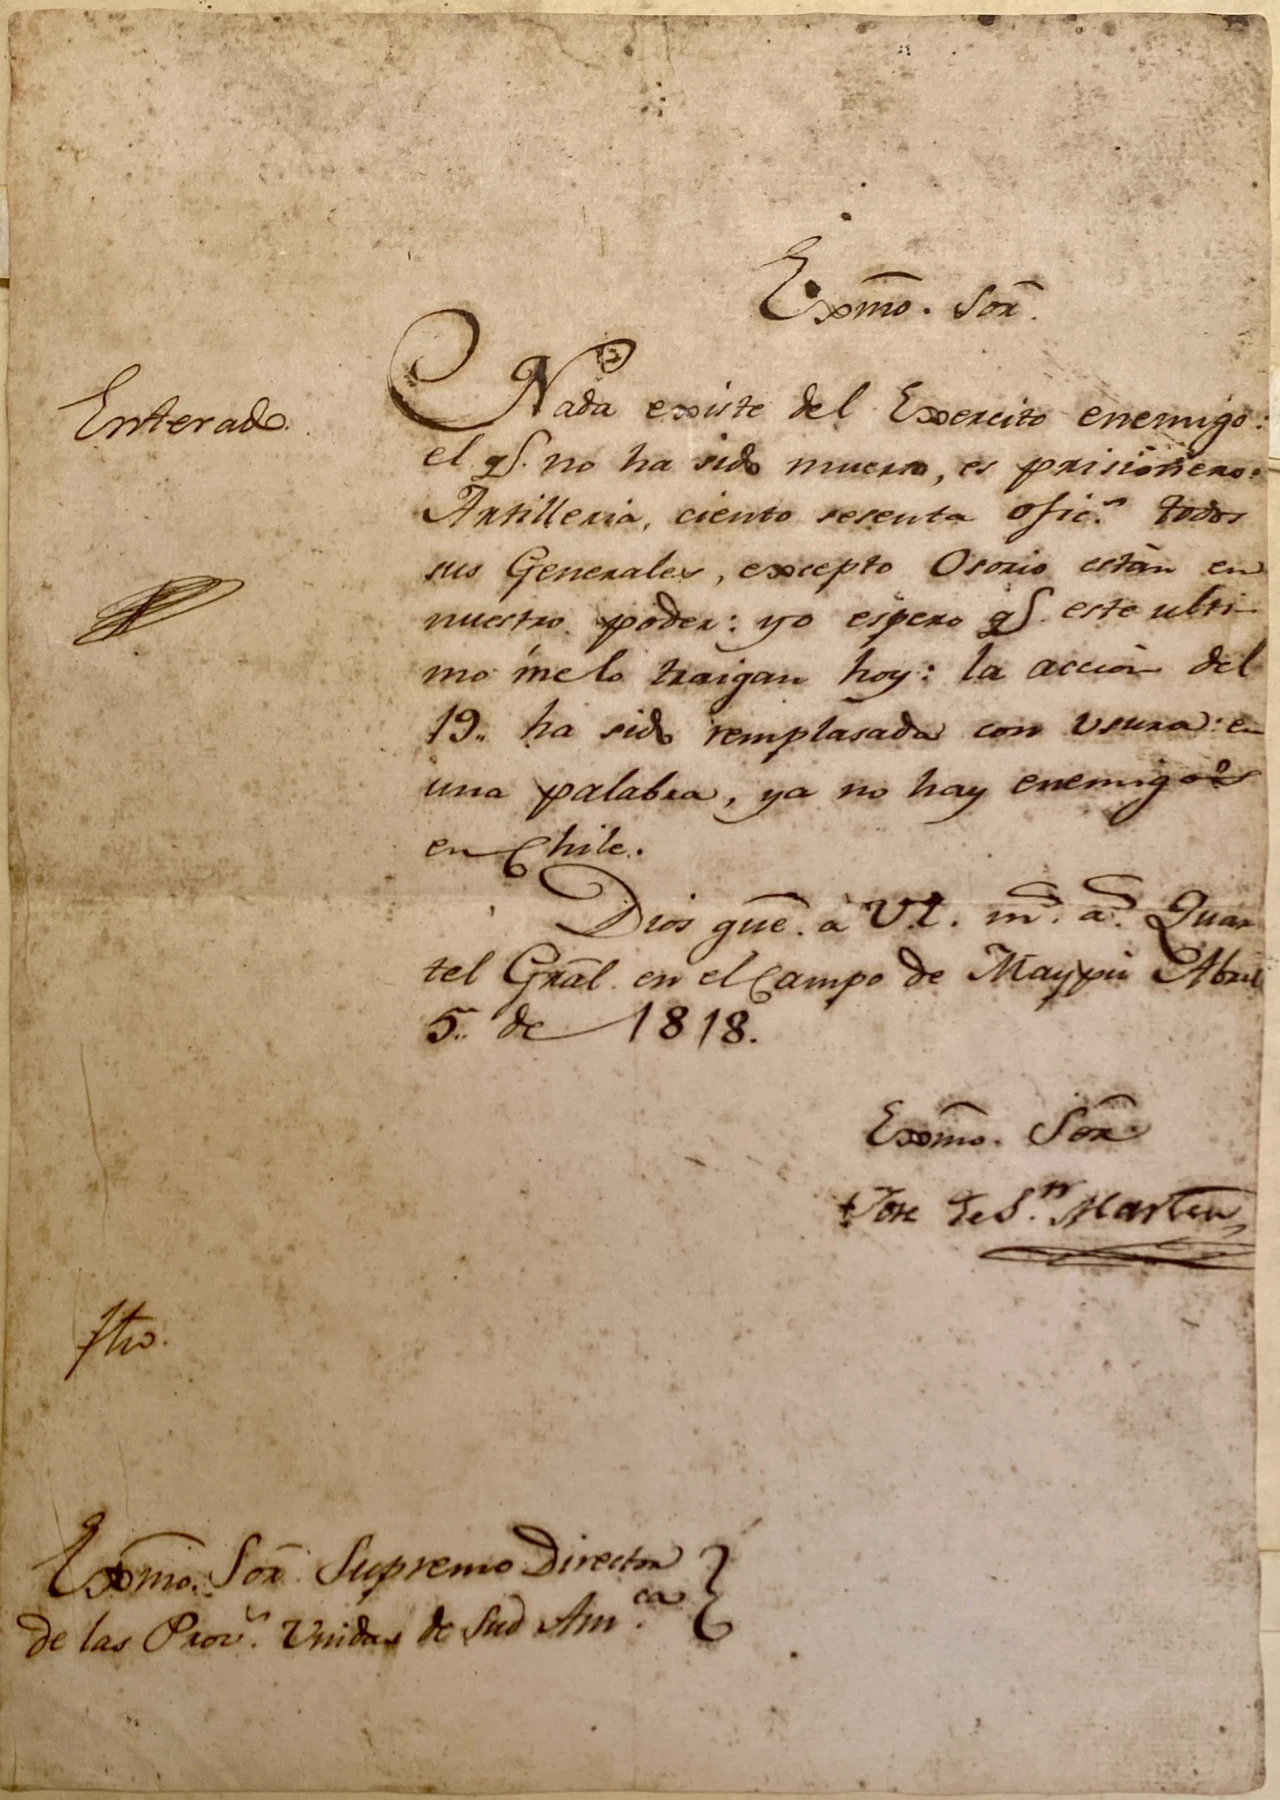 Exmo. Sor.
Enterado.
Nada existe del Exercito enemigo:
el q.e no ha sido muerto, es prisionero:
Artilleria, ciento sesenta ofic.s todos
sus Generales, excepto Osorio están en
nuestro poder: yo espero q.e este ulti-
mo me lo traigan hoy: la acción del
19.. ha sido remplasada con usura: en
una palabra, ya no hay enemigos
en Chile.
Dios gue. à V.E. m.s a.s Quar
tel Gral. en el Campo de Maypú Abril
5.. de 1818.
Exmo. Sor.
Jose de S.n Martin
Exmo. Sor. Supremo Director
de las Prov.s Unidas de Sud Am.ca